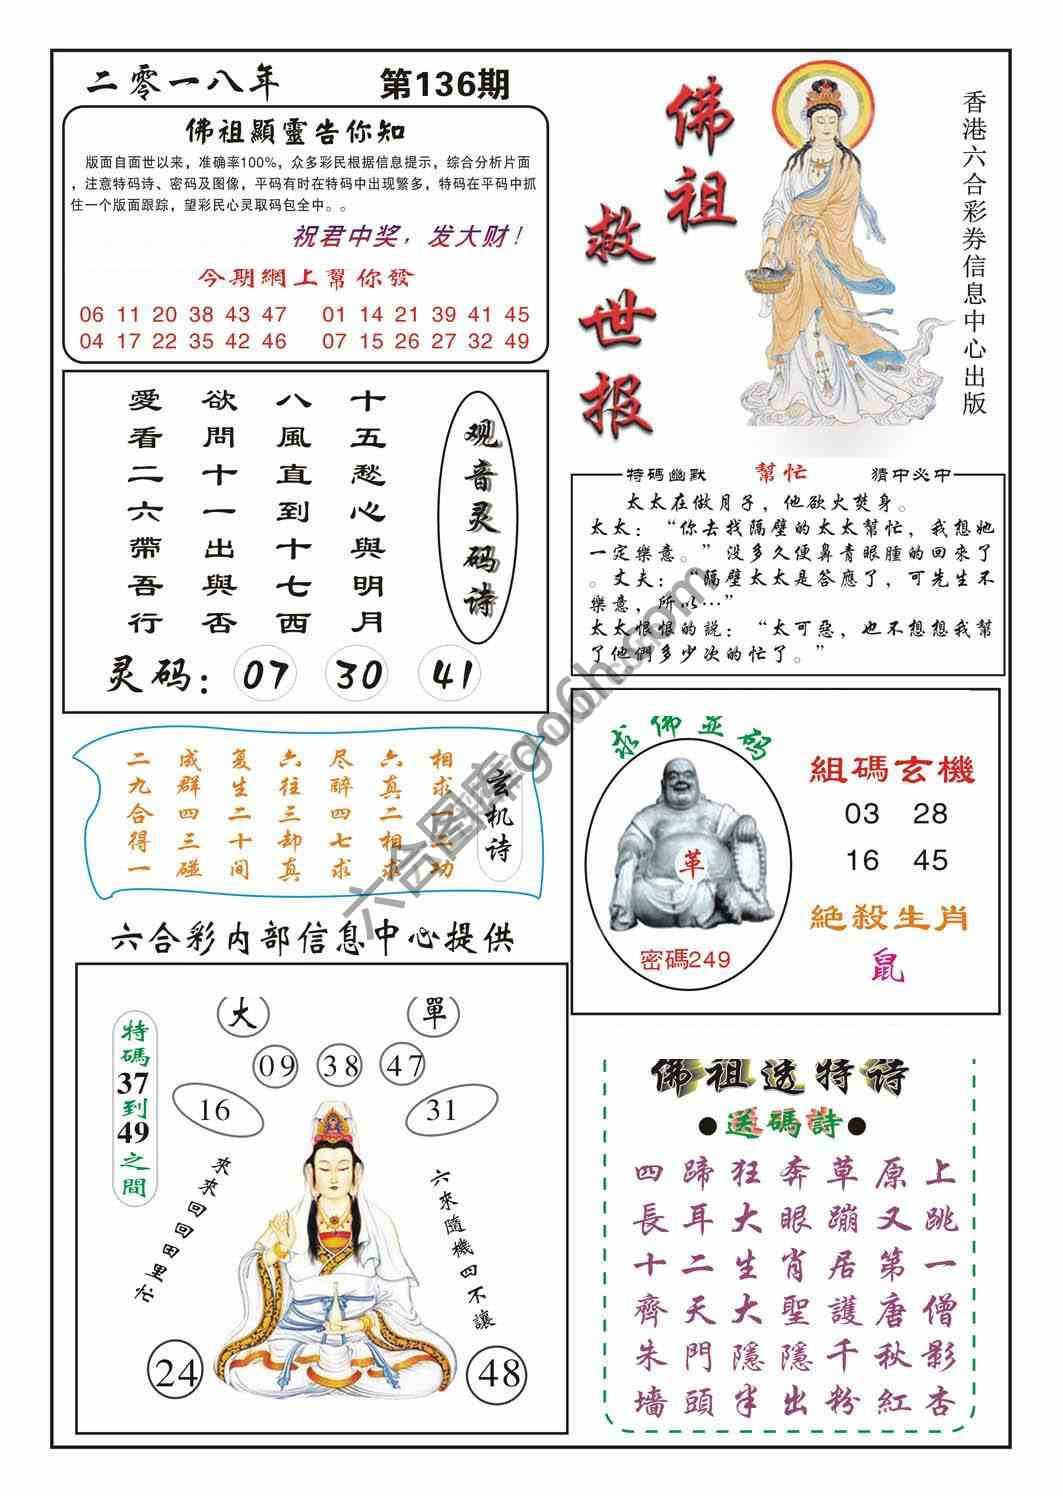 二零一八年
第136期
佛祖顯靈告你知
版面自面世以来，准确率100%，众多彩民根据信息提示，综合分析片面
，注意特码诗、密码及图像，平码有时在特码中出现繁多，特码在平码中抓
住一个版面跟踪，望彩民心灵取码包全中。。
祝君中奖，发大财！
今期網上幫你發
06 11 20 38 43 47 01 14 21 39 41 45
04 17 22 35 42 46 07 15 26 27 32 49
佛祖
救世报
香港六合彩券信息中心出版
观音灵码诗
十五愁心與明月
八風直到十七西
欲問十一出與否
愛看二六帶吾行
灵码：07 30 41
特碼幽默 幫忙 猜中必中
太太在做月子，他欲火焚身。
太太：“你去找隔壁的太太幫忙，我想她
一定樂意。”没多久便鼻青眼腫的回來了
。丈夫：“隔壁太太是答應了，可先生不
樂意，所以…”
太太恨恨的說：“太可惡，也不想想我幫
了他們多少次的忙了。”
玄机诗
相求一二功
六真二相求
尽醉四七求
六往三却真
复生二十间
成群四三碰
二九合得一
求佛並码
革
密碼249
組碼玄機
03 28
16 45
絶殺生肖
鼠
六合彩内部信息中心提供
特碼37到49之間
大 單
09 38 47
16 31
來來回回田里忙
六來隨機四不讓
24 48
佛祖透特诗
●送碼詩●
四蹄狂奔草原上
長耳大眼蹦又跳
十二生肖居第一
齊天大聖護唐僧
朱門隱隱千秋影
墙頭半出粉紅杏
六合图库go6h.com